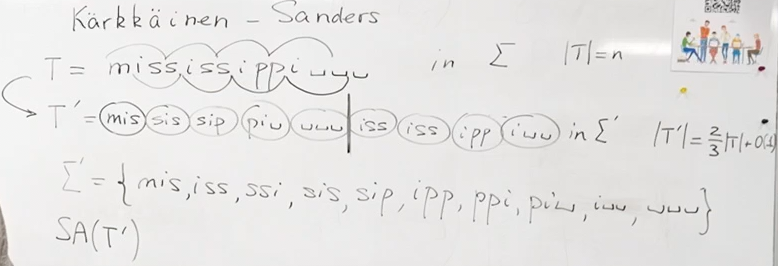 Kärkkäinen – Sanders
T = mississippi␣␣␣ in Σ |T|=n
T' = mis sis sip pi␣ ␣␣␣ | iss iss ipp i␣␣ in Σ' |T'|=2/3|T|+O(1)
Σ' = {mis, iss, ssi, sis, sip, ipp, ppi, pi␣, i␣␣, ␣␣␣}
SA(T')